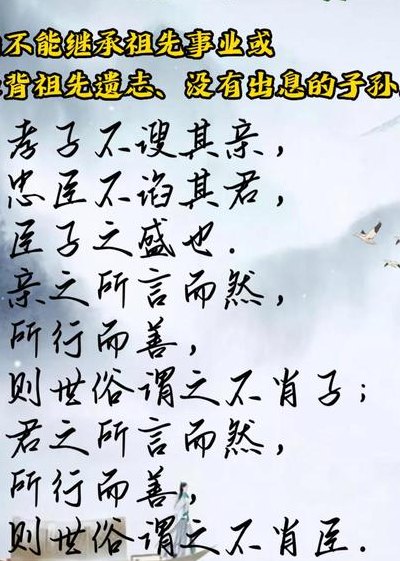 不能继承祖先事业或
背祖先遗志、没有出息的子孙
孝子不谀其亲，
忠臣不谄其君，
臣子之盛也.
亲之所言而然，
所行而善，
则世俗谓之不肖子；
君之所言而然，
所行而善，
则世俗谓之不肖臣.